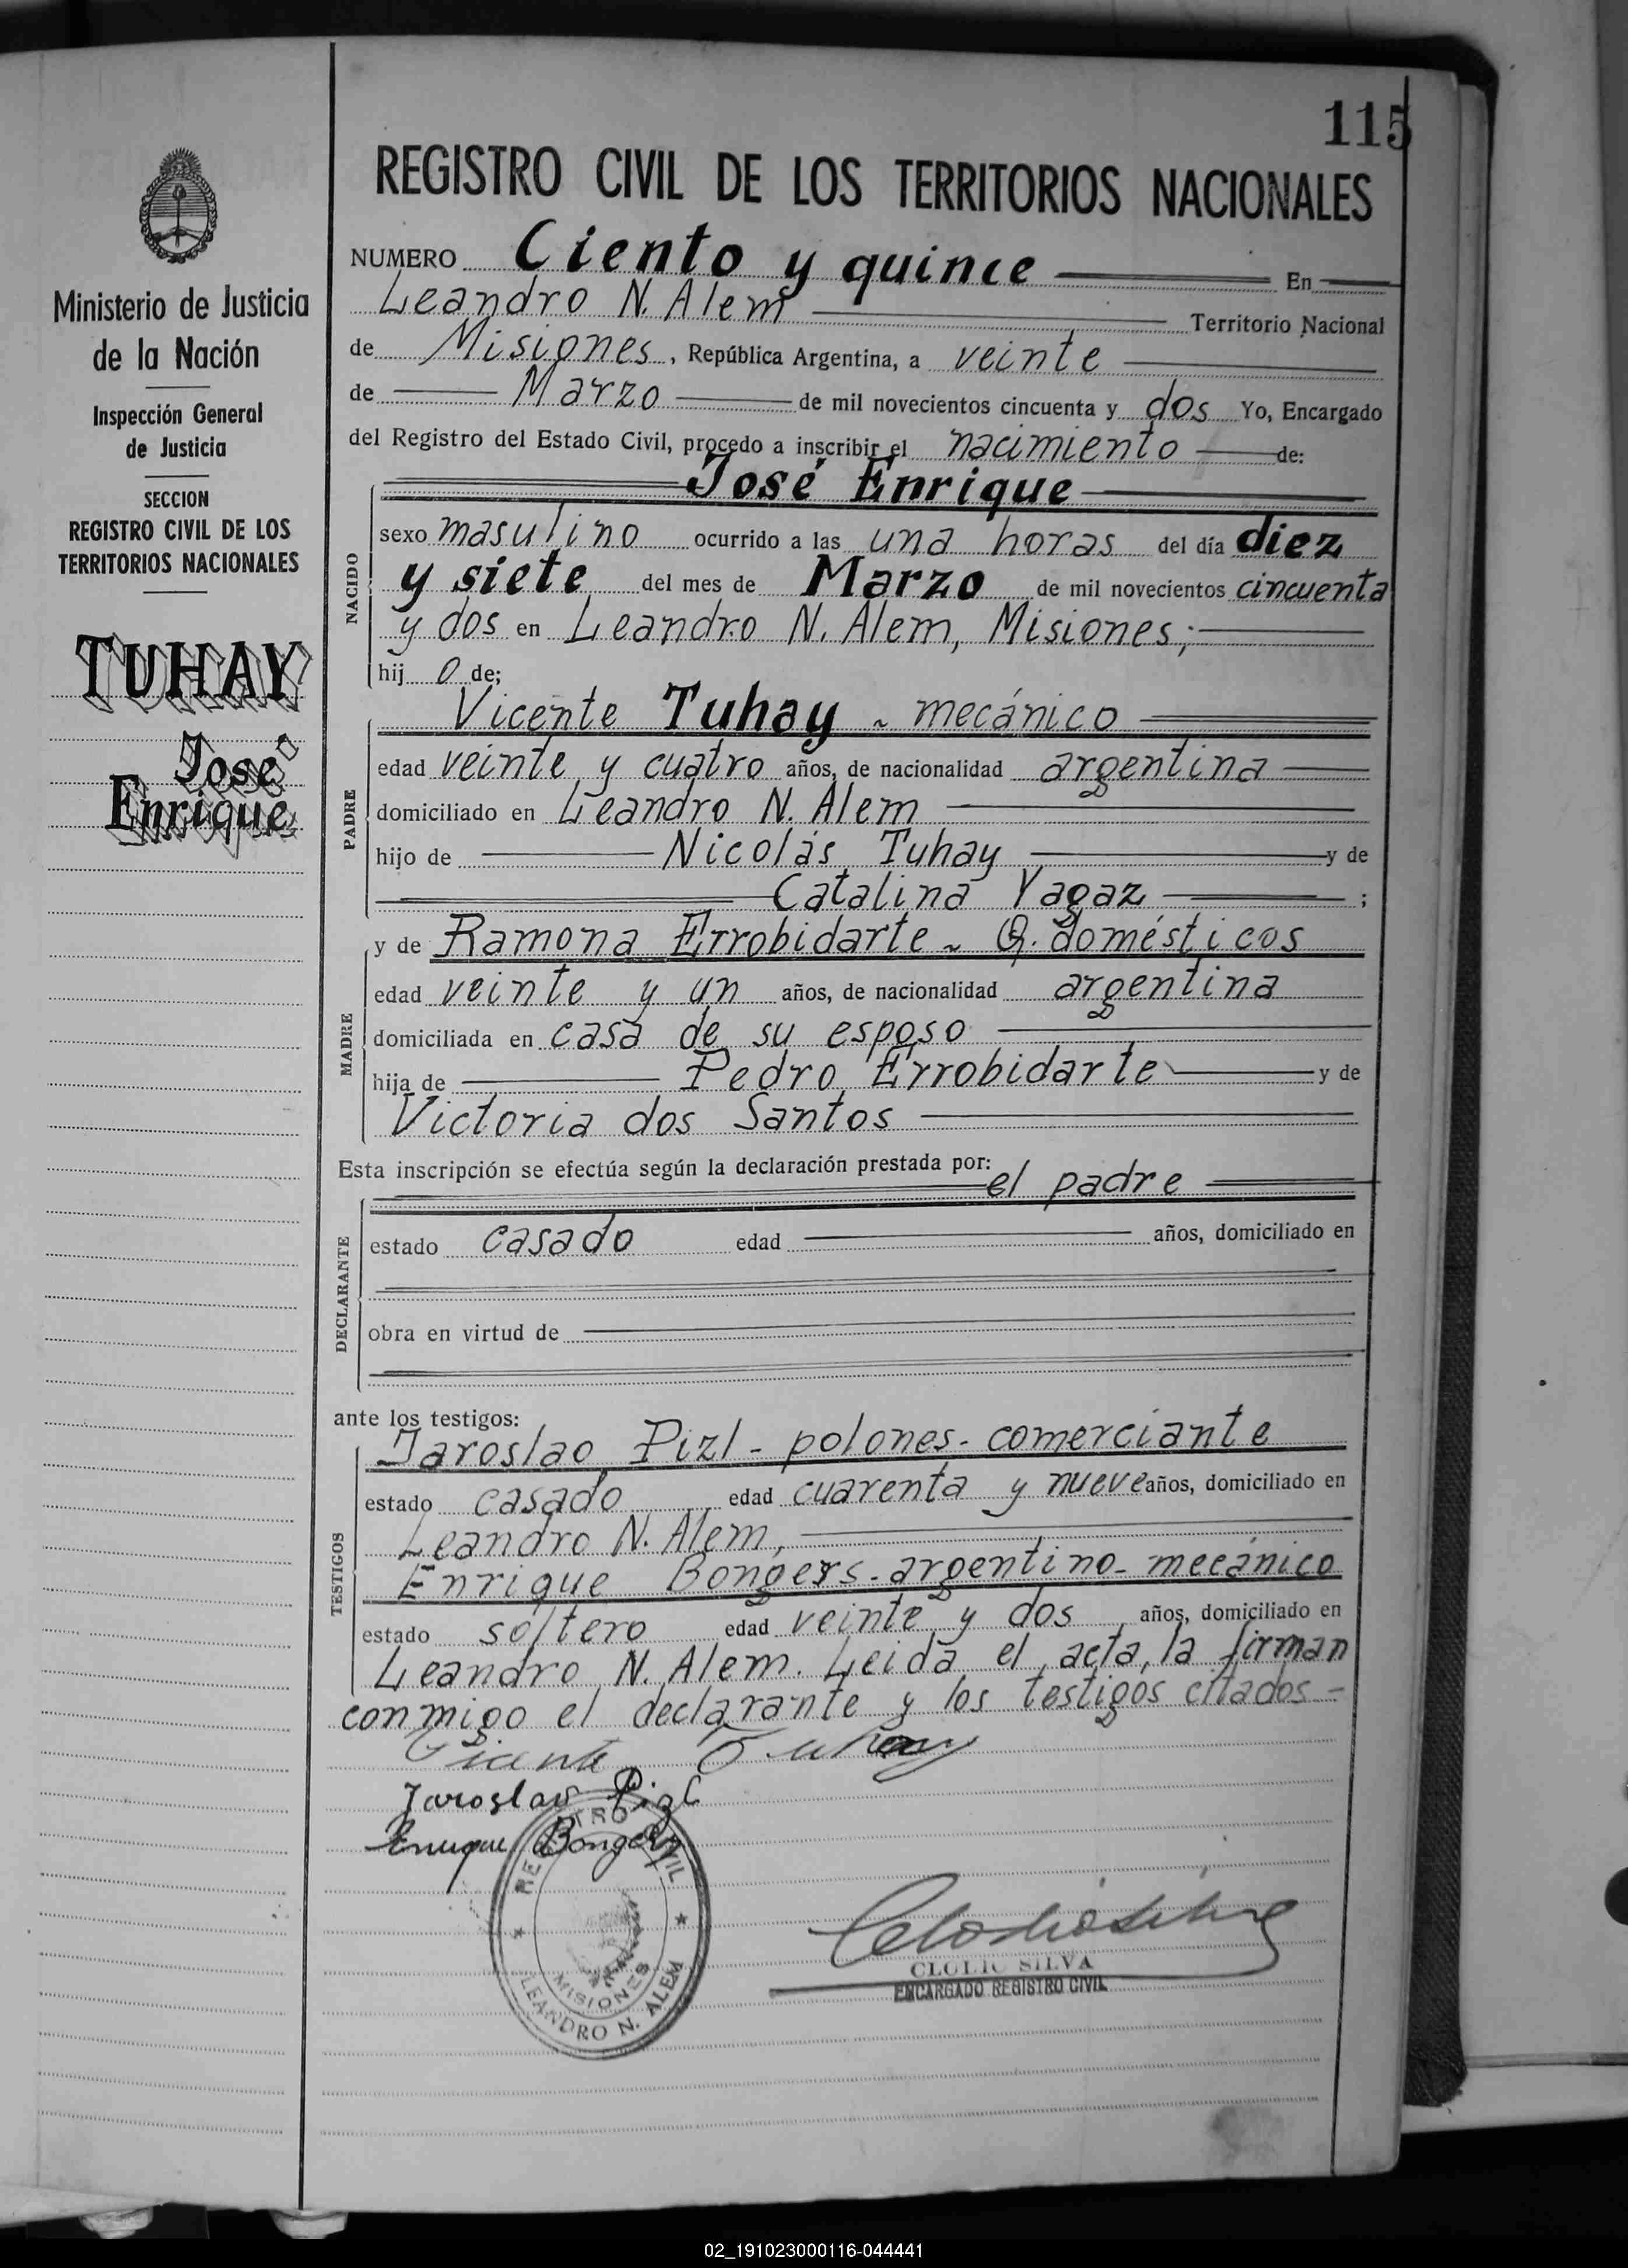 115
REGISTRO CIVIL DE LOS TERRITORIOS NACIONALES
Ministerio de Justicia
de la Nación
Inspección General
de Justicia
SECCION
REGISTRO CIVIL DE LOS
TERRITORIOS NACIONALES
TUHAY
José
Enrique
NUMERO Ciento y quince En
Leandro N. Alem Territorio Nacional
de Misiones, República Argentina, a veinte
de Marzo de mil novecientos cincuenta y dos Yo, Encargado
del Registro del Estado Civil, procedo a inscribir el nacimiento de:
José Enrique
NACIDO
sexo masulino ocurrido a las una horas del día diez
y siete del mes de Marzo de mil novecientos cincuenta
y dos en Leandro N. Alem, Misiones;
hij o de;
PADRE
Vicente Tuhay ~ mecánico
edad veinte y cuatro años, de nacionalidad argentina
domiciliado en Leandro N. Alem
hijo de Nicolás Tuhay y de
Catalina Yagaz ;
MADRE
y de Ramona Errobidarte ~ Q. domésticos
edad veinte y un años, de nacionalidad argentina
domiciliada en casa de su esposo
hija de Pedro Errobidarte y de
Victoria dos Santos
Esta inscripción se efectúa según la declaración prestada por:
el padre
DECLARANTE
estado casado edad años, domiciliado en
obra en virtud de
ante los testigos:
TESTIGOS
Jaroslao Pizl - polones - comerciante
estado casado edad cuarenta y nueve años, domiciliado en
Leandro N. Alem,
Enrique Bongers - argentino - mecánico
estado soltero edad veinte y dos años, domiciliado en
Leandro N. Alem. Leida el acta, la firman
conmigo el declarante y los testigos citados -
Vicente Tuhay
Jaroslav Pizl
Enrique Bongers
REGISTRO CIVIL
MISIONES
LEANDRO N. ALEM
CLOLIO SILVA
ENCARGADO REGISTRO CIVIL
02_191023000116-044441